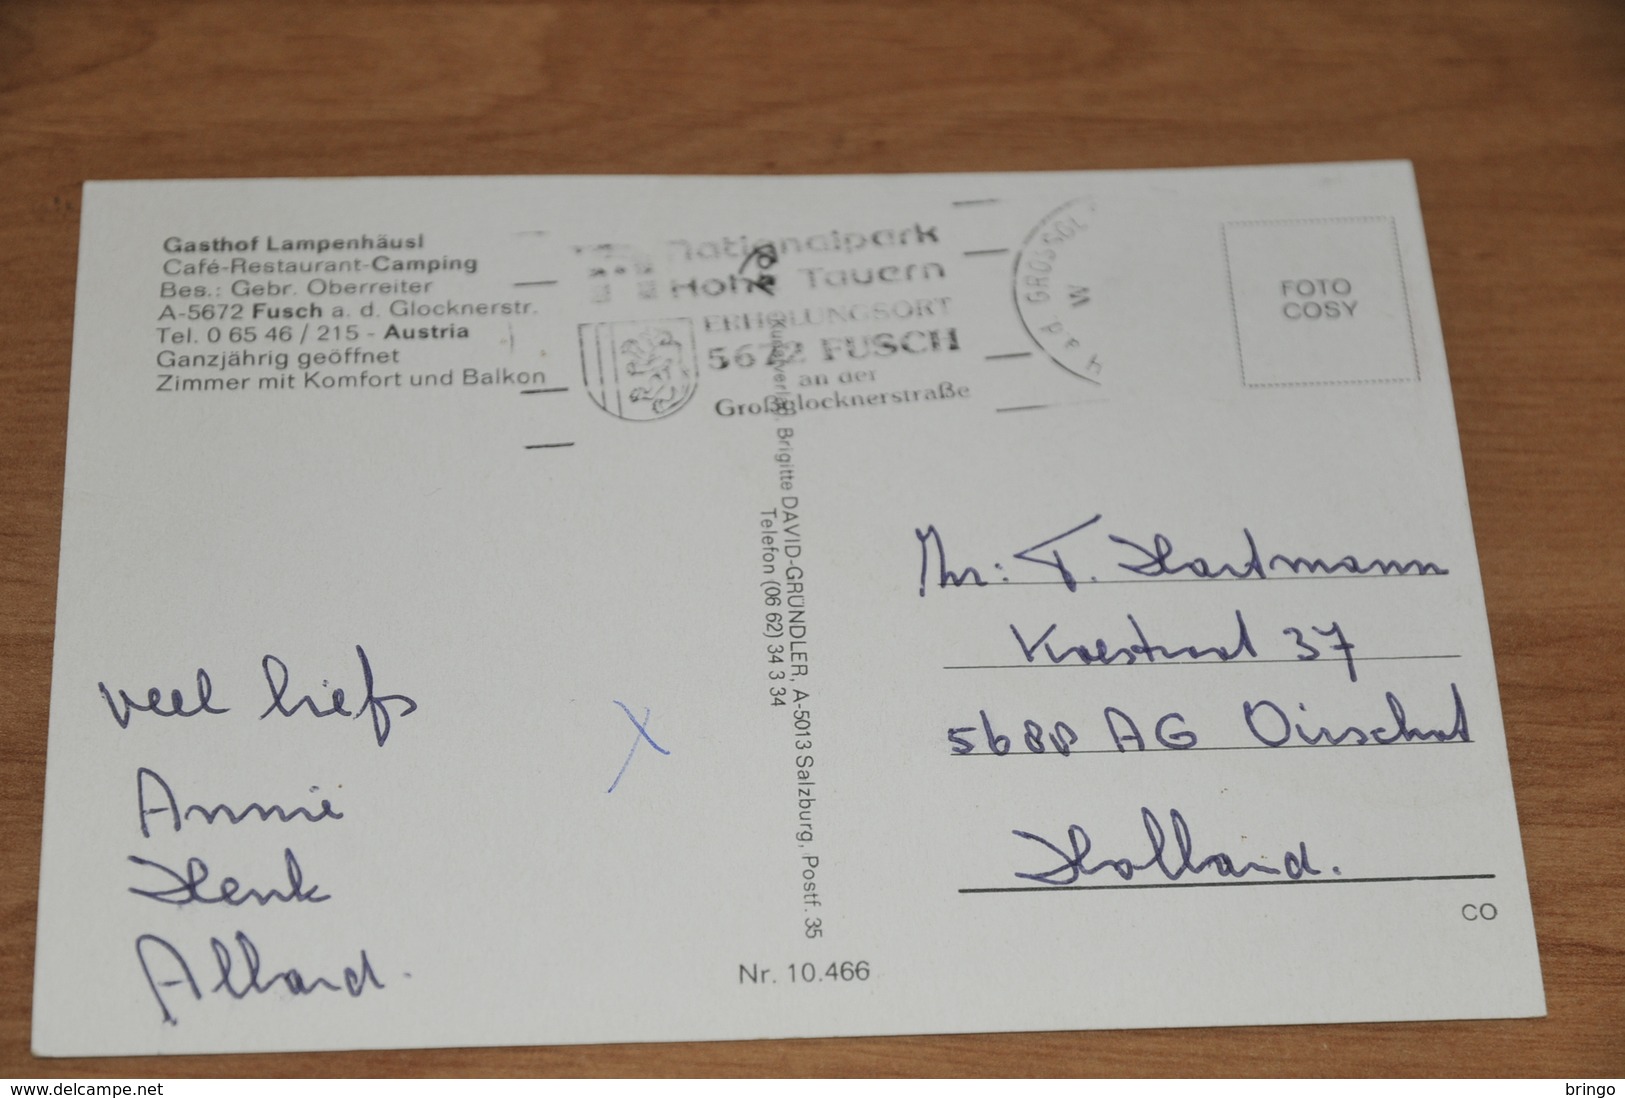 Gasthof Lampenhäusl
Café-Restaurant-Camping
Bes.: Gebr. Oberreiter
A-5672 Fusch a. d. Glocknerstr.
Tel. 0 65 46 / 215 - Austria
Ganzjährig geöffnet
Zimmer mit Komfort und Balkon
Nationalpark
Hohe Tauern
ERHOLUNGSORT
5672 FUSCH
an der
Großglocknerstraße
FOTO
COSY
Kunstverlag Brigitte DAVID-GRÜNDLER, A-5013 Salzburg, Postf. 35
Telefon (06 62) 34 3 34
veel liefs
Annie
Henk
Allard.
T. Hartmann
37
5688 AG Oirschot
Holland.
CO
Nr. 10.466
delcampe.net
bringo